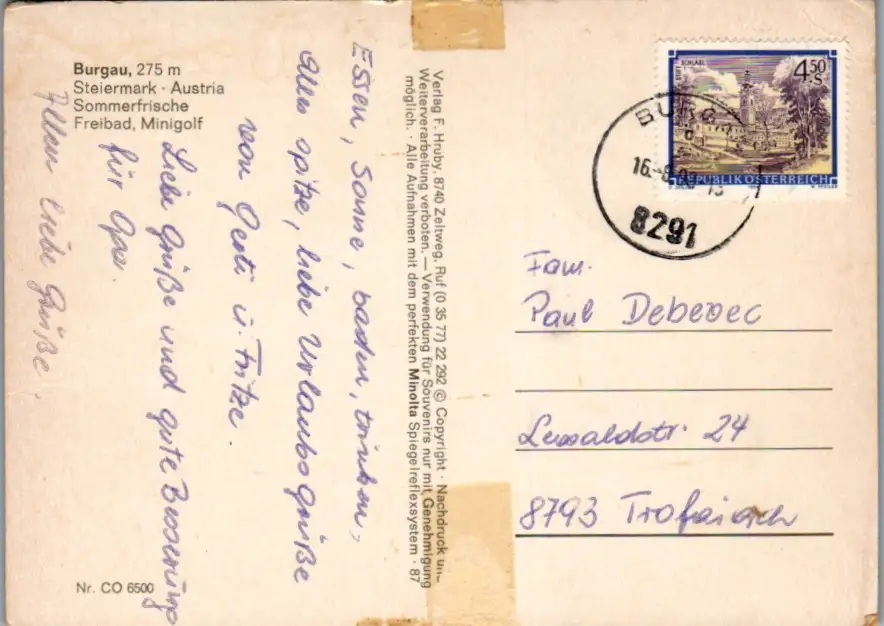 Burgau, 275 m
Steiermark · Austria
Sommerfrische
Freibad, Minigolf
Essen, Sonne, baden, trinken,
alles spitze, liebe Urlaubsgrüße
von Gerti u. Fritze.
Liebe Grüße und gute Besserung
für Opa.
Allen liebe Grüße.
Nr. CO 6500
Verlag F. Hruby, 8740 Zeltweg, Ruf (0 35 77) 22 292 © Copyright · Nachdruck und
Weiterverarbeitung verboten. — Verwendung für Souvenirs nur mit Genehmigung
möglich. · Alle Aufnahmen mit dem perfekten Minolta Spiegelreflexsystem · 87
4.50 S
REPUBLIK ÖSTERREICH
BURG
16.-8.
8291
Fam.
Paul Debevec
24
8793 Trofaiach